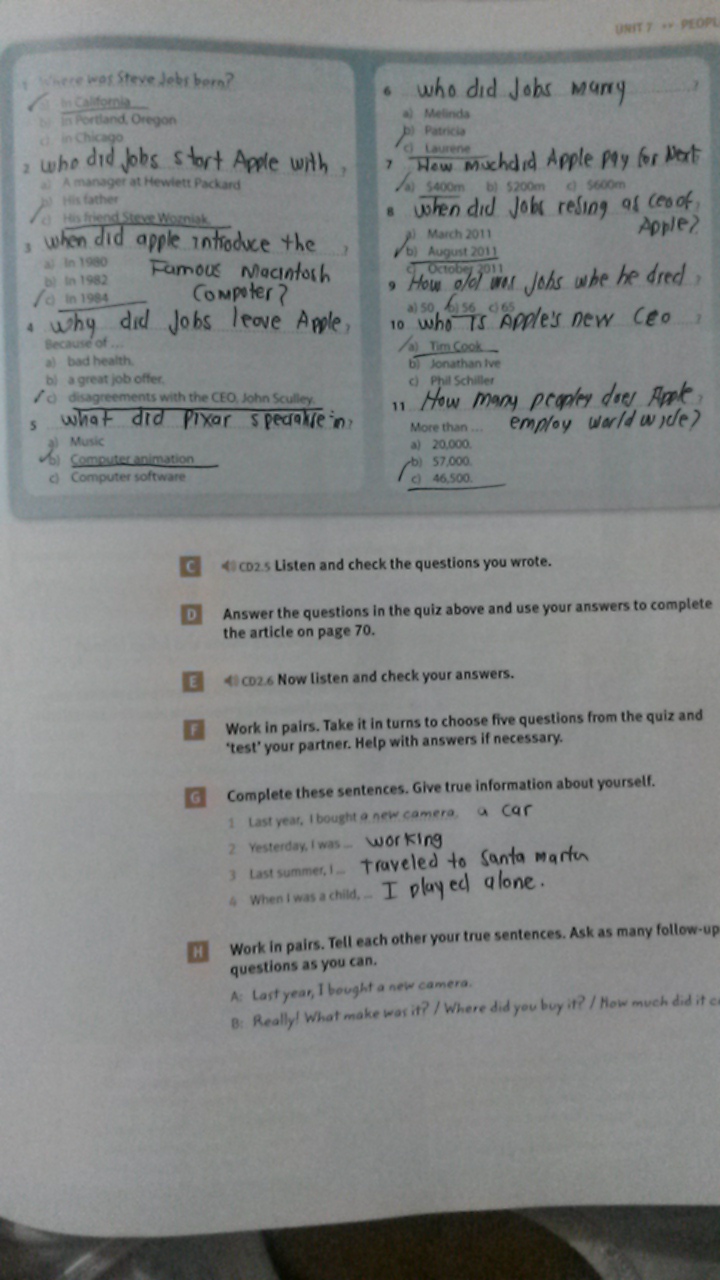 UNIT 7 •• PEOPL
1 Where was Steve Jobs born?
a) In California
b) In Portland, Oregon
c) in Chicago
2 who did Jobs start Apple with ?
a) A manager at Hewlett Packard
b) His father
c) His friend Steve Wozniak.
3 when did apple introduce the ?
a) In 1980
Famous Macintosh
b) In 1982
Computer?
c) In 1984
4 why did Jobs leave Apple ?
Because of ...
a) bad health.
b) a great job offer.
c) disagreements with the CEO, John Sculley.
5 what did Pixar specialize in ?
a) Music
b) Computer animation
c) Computer software
6 who did Jobs marry ?
a) Melinda
b) Patricia
c) Laurene
7 How much did Apple pay for Next
a) $400m b) $200m c) $600m
8 when did Jobs resing as ceo of
Apple?
a) March 2011
b) August 2011
c) October 2011
9 How old was Jobs whe he died ?
a) 50 b) 56 c) 65
10 who is Apple's new CEO ?
a) Tim Cook
b) Jonathan Ive
c) Phil Schiller
11 How many peopley does Apple ?
More than ... employ worldwide?
a) 20,000.
b) 57,000.
c) 46,500.
C CD2.5 Listen and check the questions you wrote.
D Answer the questions in the quiz above and use your answers to complete
the article on page 70.
E CD2.6 Now listen and check your answers.
F Work in pairs. Take it in turns to choose five questions from the quiz and
'test' your partner. Help with answers if necessary.
G Complete these sentences. Give true information about yourself.
1 Last year, I bought a new camera. a car
2 Yesterday, I was ... working
3 Last summer, I ... traveled to Santa marta
4 When I was a child, ... I played alone.
H Work in pairs. Tell each other your true sentences. Ask as many follow-up
questions as you can.
A: Last year, I bought a new camera.
B: Really! What make was it? / Where did you buy it? / How much did it c